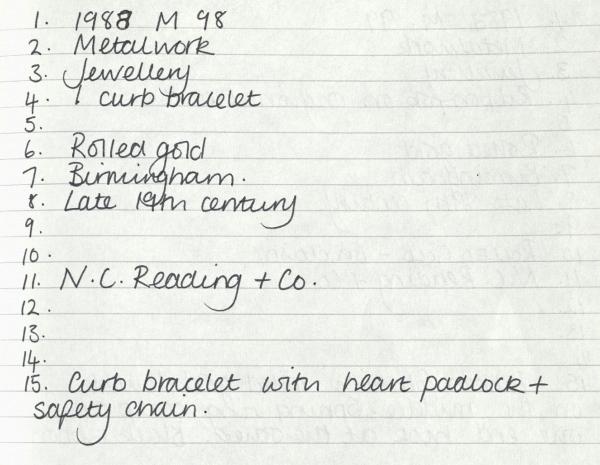 1. 1988 M 98
2. Metalwork
3. Jewellery
4. 1 curb bracelet
5.
6. Rolled gold
7. Birmingham.
8. Late 19th century
9.
10.
11. N.C. Reading + Co.
12.
13.
14.
15. Curb bracelet with heart padlock +
safety chain.